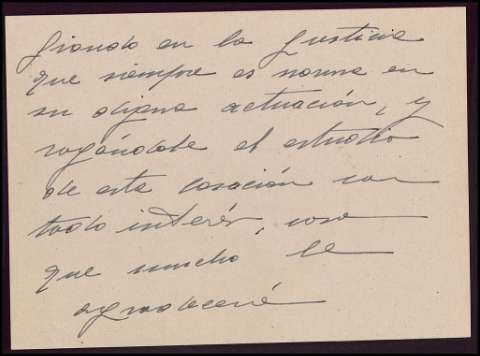 fiando en la justicia
que siempre es norma en
su digna actuación, y
rogándole el estudio
de esta casación con
todo interés, cosa
que mucho le
agradeceré